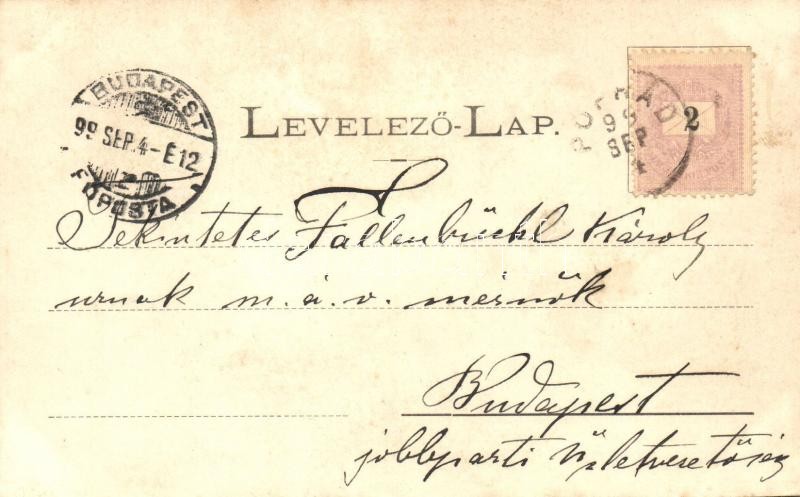 BUDAPEST
99 SEP. 4 - É12
FŐPOSTA
LEVELEZŐ-LAP.
POPRÁD
99
SEP
4
2
Tekintetes Fallenbüchl Károly
urnak m. á. v. mérnök
Budapest
jobbparti Üzletvezetőség